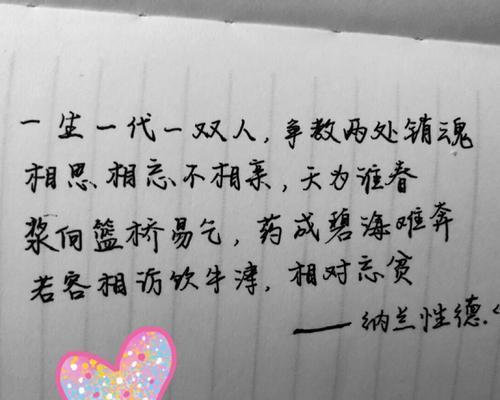 一生一代一双人，争教两处销魂
相思相忘不相亲，天为谁春
浆向篮桥易乞，药成碧海难奔
若容相访饮牛津，相对忘贫
——纳兰性德